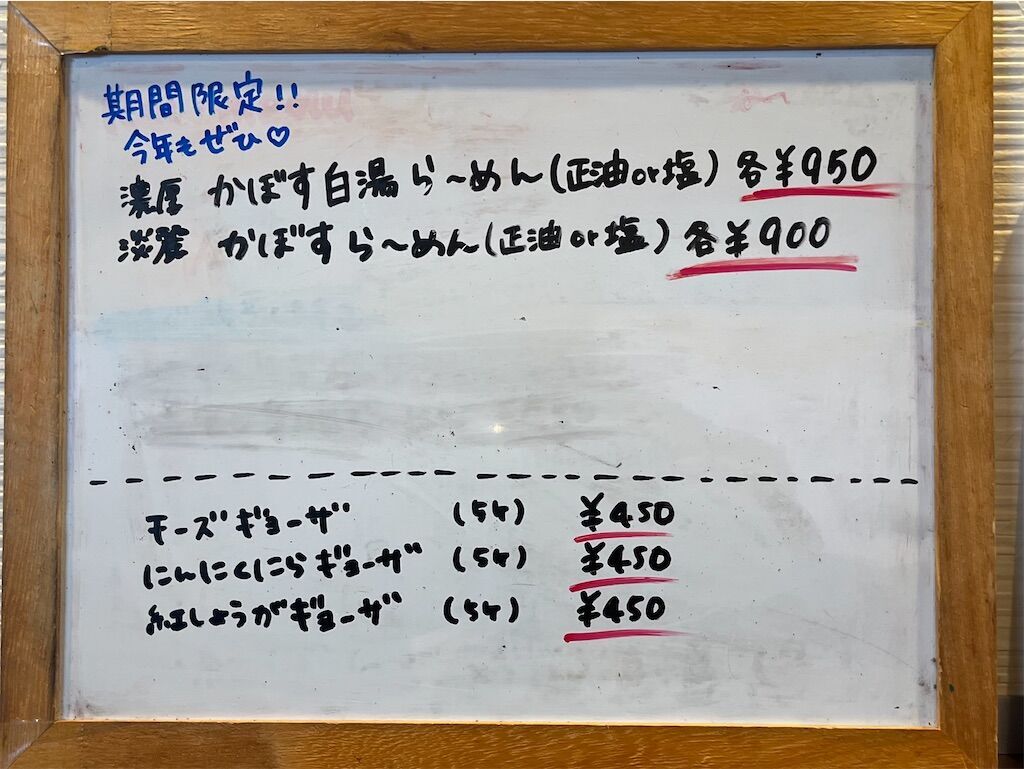 期間限定!!
今年もぜひ♡
濃厚 かぼす白湯ら〜めん(正油or塩) 各¥950
淡麗 かぼすら〜めん(正油or塩) 各¥900
モーズギョーザ (5ケ) ¥450
にんにくにらギョーザ (5ケ) ¥450
紅しょうがギョーザ (5ケ) ¥450